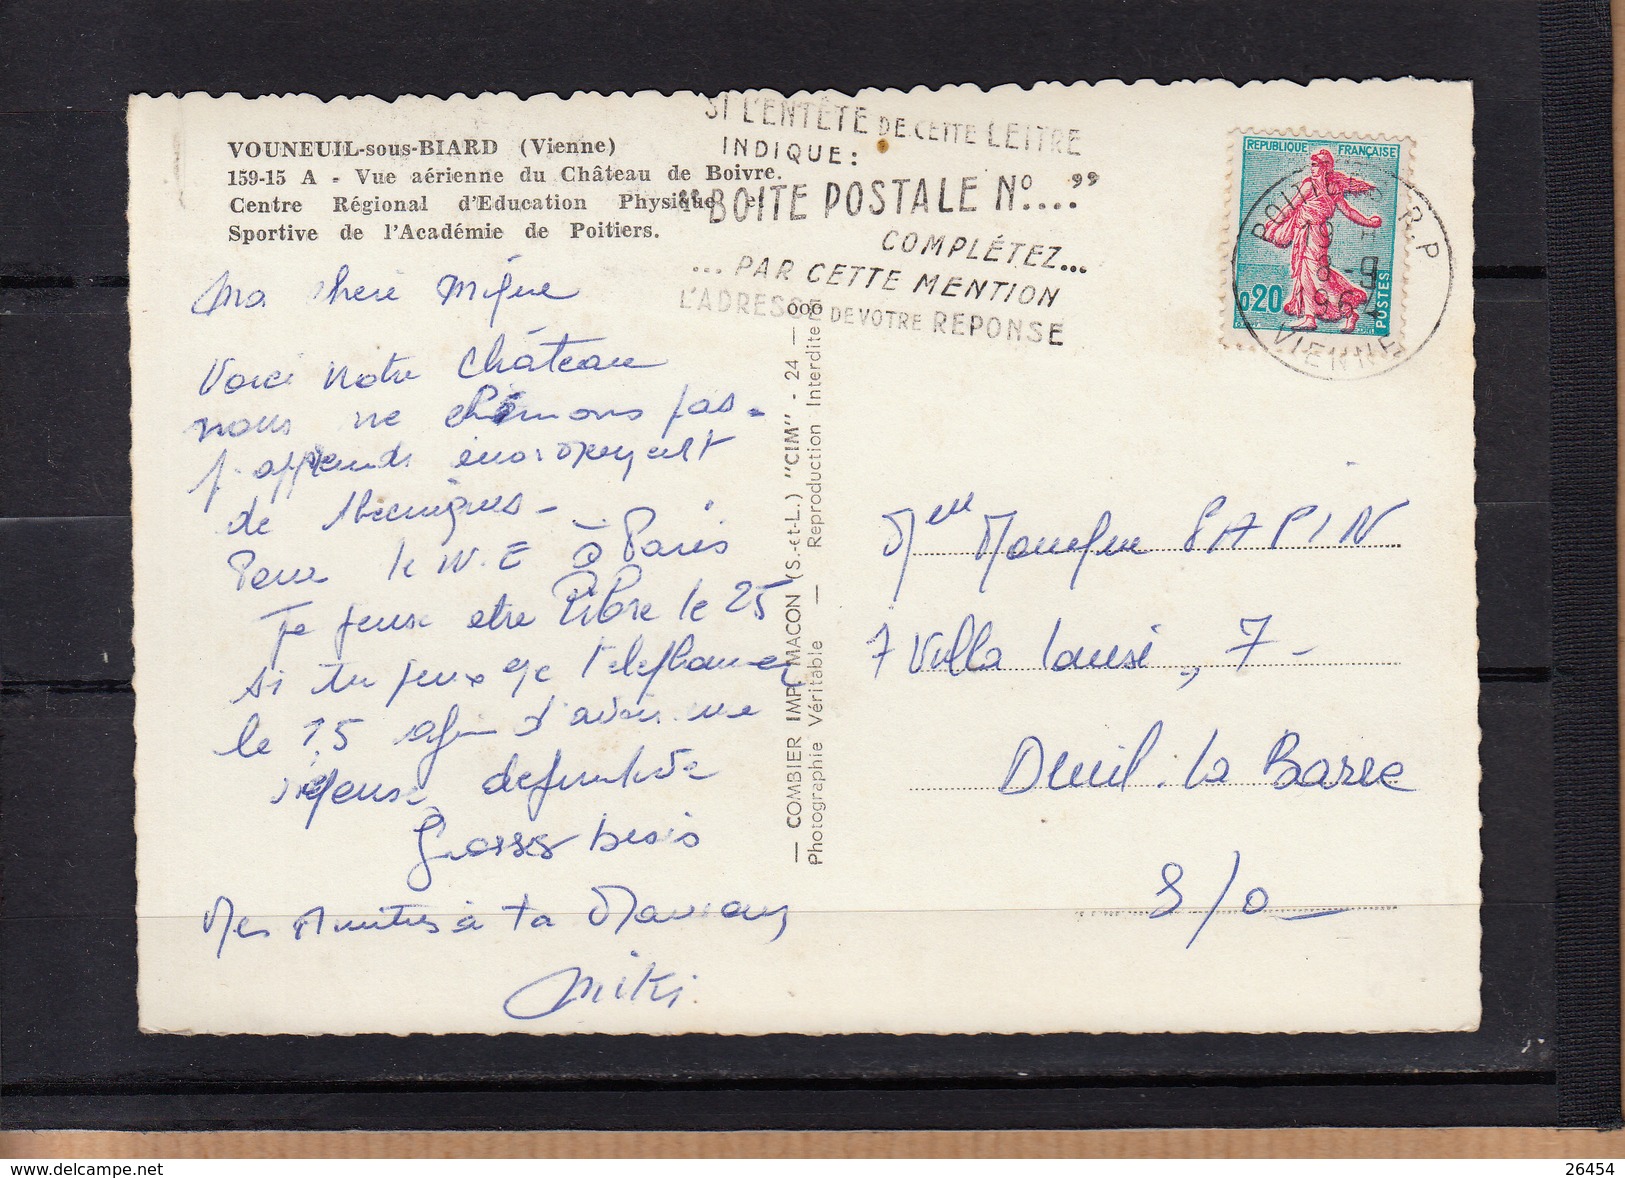 VOUNEUIL-sous-BIARD (Vienne)
159-15 A - Vue aérienne du Château de Boivre.
Centre Régional d'Education Physique et
Sportive de l'Académie de Poitiers.
SI L'ENTÊTE DE CETTE LETTRE
INDIQUE:
"BOITE POSTALE No...."
COMPLÉTEZ...
...PAR CETTE MENTION
L'ADRESSE DE VOTRE REPONSE
REPUBLIQUE FRANÇAISE
0,20
POSTES
POITIERS R.P
19 H
8-9
1964
VIENNE
Ma chère
Voici notre château
nous ne chômons pas.
j'apprends énormément
de techniques -
Pour le W.E à Paris
Je peux être libre le 25
si tu peux me téléphoner
le 15 afin d'avoir une
réponse définitive
Grosses bises
Mes amitiés à ta Maman
Miki
— COMBIER IMP. MACON (S.-et-L.) "CIM" - 24 — 000
Photographie Véritable — Reproduction Interdite
Melle Monique PAPIN
7 Villa Louise, 7-
Deuil. La Barre
S/O
www.delcampe.net
metallah
26454